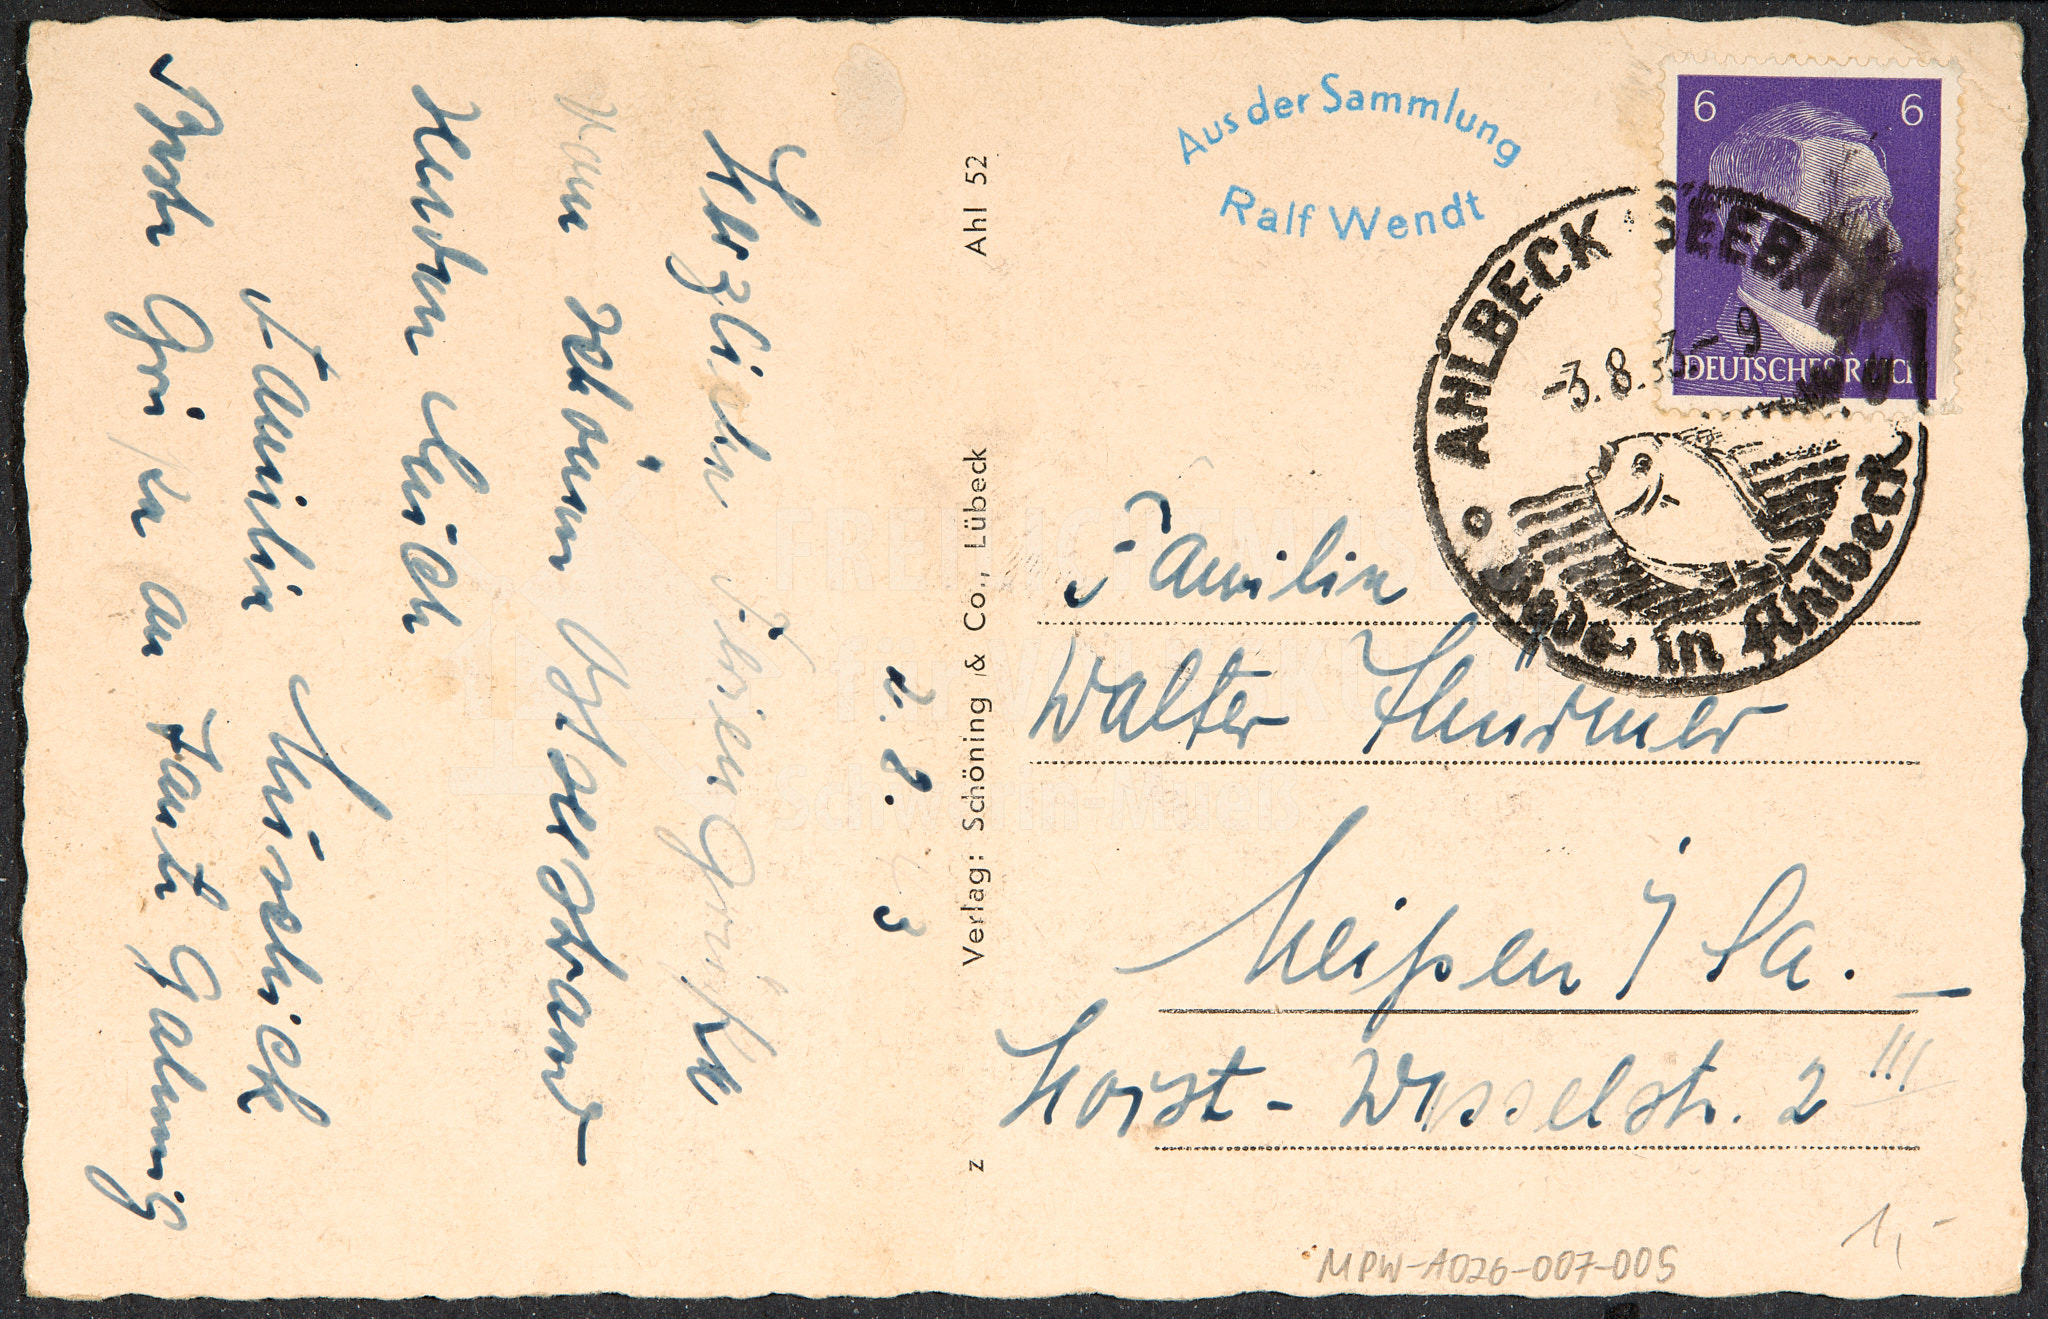 2. 8. 43
Herzliche Feriengrüße
vom schönen Ostseestrand
senden Euch
Familie
Beste Grüße an Familie
Verlag: Schöning & Co., Lübeck
Ahl 52
z
Aus der Sammlung
Ralf Wendt
6 6
DEUTSCHES REICH
AHLBECK SEEBAD
-3.8.43.-9
Bade in Ahlbeck
Familie
Walter Thürmer
Meißen i/Sa.
Horst-Wesselstr. 2 III
1,-
MPW-A026-007-005
FREILICHTMUSEUM
für VOLKSKUNDE
Schwerin-Mueß